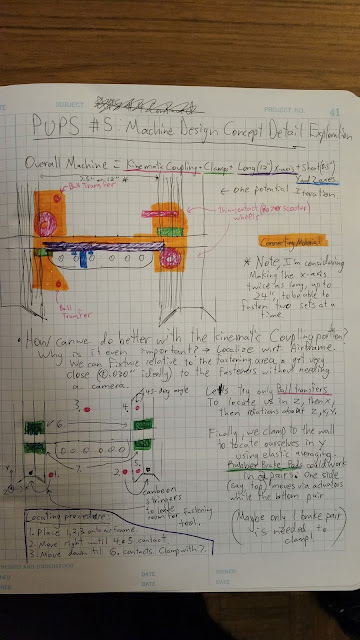 SUBJECT
PROJECT NO. 41
PUPS #5: Machine Design Concept Detail Exploration
Overall Machine = Kinematic Coupling + Clamp + Long (12") X-axis + Short (0.5")
2nd Z-axes
← One potential Iteration
Ball Transfer
Thin contact (Razor scooter)
wheels)
Connecting Material
* Note, I'm considering
Making the x-axis
twice as long, up to
24", to be able to
fasten two sets at a
time.
Ball
Transfer
• How can we do better with the kinematic coupling position?
Why is it even important? → Localize wrt Airframe.
We can Fixture relative to the fastening area & get very
close (±.030" ideally) to the fasteners without needing
a camera.
45-deg angle
Let's try only Ball transfers
To locate us in Z, then X,
then rotations about Z, X, Y.
3.
4.
6
Finally, we clamp to the wall
to locate ourselves in Y
using elastic averaging.
Brake Pads could work
in 2 pairs. One side
(say top) moves via actuators
while the bottom pair
7.
Y
1.
2.
5.
can be on
stringers
to leave
room for fastening
tool.
(Maybe only 1 brake pair
is needed to
clamp!)
Locating procedure:
1. Place 1,2,3 onto airframe
2. Move right until 4 & 5 contact
3. Move down til 6 contacts. Clamp with 7.
DATE
DATE